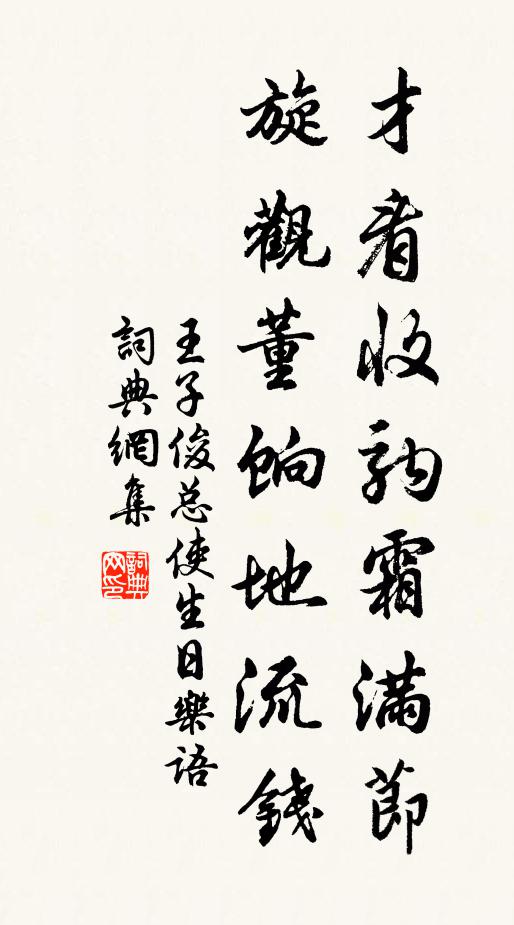 才看收霜滿節
旋觀董餉地流錢
王子俊总使生日樂語
詞典網集
詞典
网印